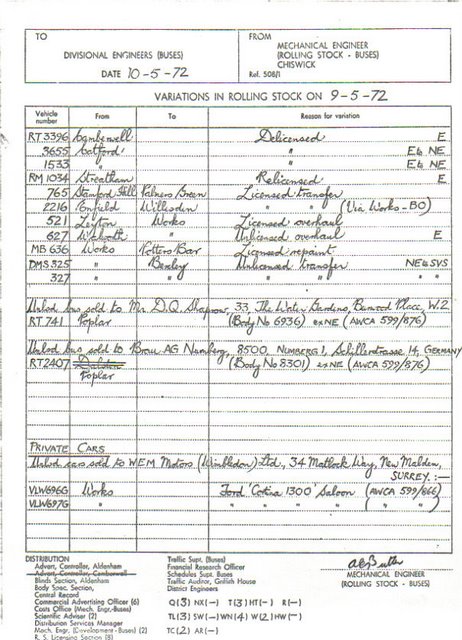 TO
DIVISIONAL ENGINEERS (BUSES)
DATE 10-5-72
FROM
MECHANICAL ENGINEER
(ROLLING STOCK - BUSES)
CHISWICK
Ref. 508/1
VARIATIONS IN ROLLING STOCK ON 9-5-72
Vehicle number From To Reason for variation
RT 3396 Camberwell Delicensed E
3655 Catford " E to NE
1533 " " E to NE
RM 1034 Streatham Relicensed E
765 Stamford Hill Palmers Green Licensed transfer
2216 Enfield Willesden " " (Via Works - BO)
521 Leyton Works Licensed overhaul
627 Walworth " Unlicensed overhaul E
MB 636 Works Potters Bar Licensed repaint
DMS 325 " Bexley Unlicensed transfer NE to SVS
327 " " " " "
Unlsd bus sold to Mr. D.Q. 33, The Water Gardens, Burwood Place, W.2
RT 741 Poplar (Body No 6936) ex NE (AWCA 599/876)
Unlsd bus sold to Brau AG Nurnberg, 8500, Nurnberg 1, Schillerstrasse 14, GERMANY
RT2407 Dalston (Body No 8301) ex NE (AWCA 599/876)
Poplar
PRIVATE CARS
Unlsd cars sold to WEM Motors (Wimbledon) Ltd., 34 Matlock Way, New Malden,
SURREY :—
VLW 696G Works Ford 'Cortina 1300' Saloon (AWCA 599/866)
VLW 697G " " " " " "
DISTRIBUTION
Advert. Controller, Aldenham
Advert. Controller, Camberwell
Blinds Section, Aldenham
Body Spec. Section,
Central Record
Commercial Advertising Officer (6)
Costs Office (Mech. Engr.-Buses)
Scientific Adviser (2)
Distribution Services Manager
Mech. Engr. (Development - Buses) (2)
R. S. Licensing Section (8)
Traffic Supt. (Buses)
Financial Research Officer
Schedules Supt. Buses
Traffic Auditor, Griffith House
District Engineers
Q (3) NX (—) T (3) HT (—) R (—)
TL (3) SW (—) WN (4) W (2) HW (—)
TC (2) AR (—)
MECHANICAL ENGINEER
(ROLLING STOCK - BUSES)